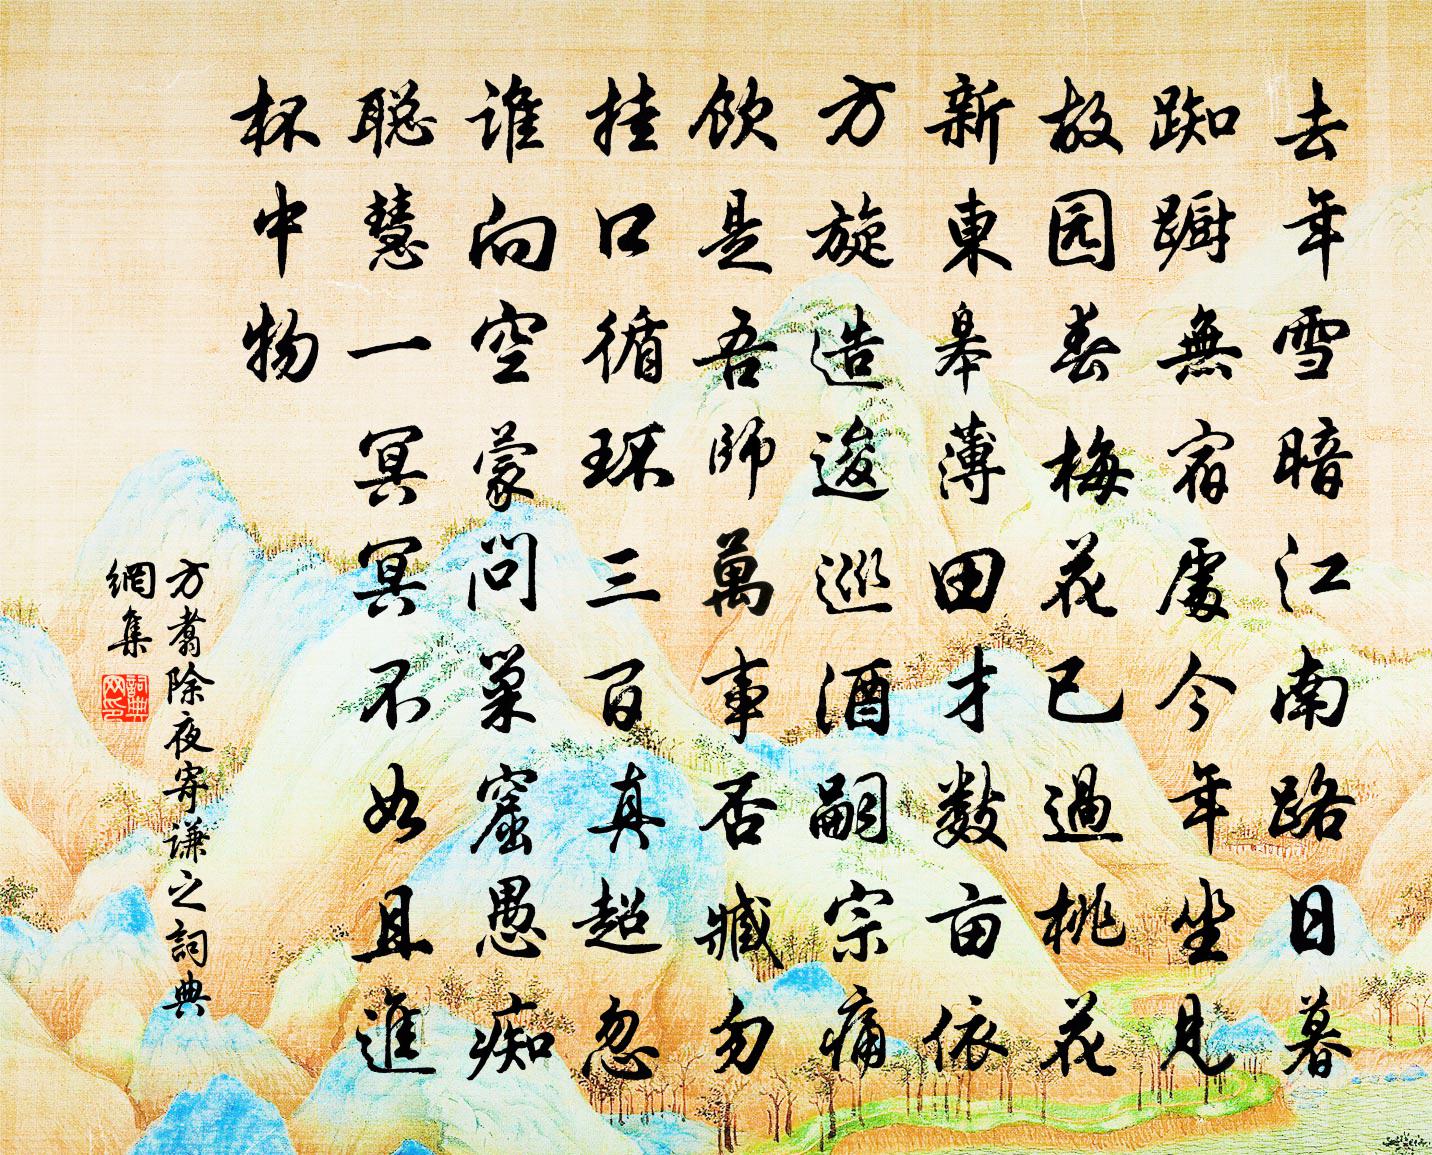 去年雪暗江南路日暮
踟蹰無宿處今年坐見
故园春梅花已過桃花
新東皋薄田才数亩依
方旋造逡巡酒嗣宗痛
飲是吾師萬事否臧勿
挂口循环三百真超忽
谁向空蒙问巢窟愚痴
聪慧一冥冥不如且進
杯中物
方翥除夜寄谦之詞典
網集